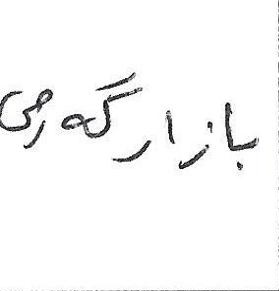 بازارگەرمی